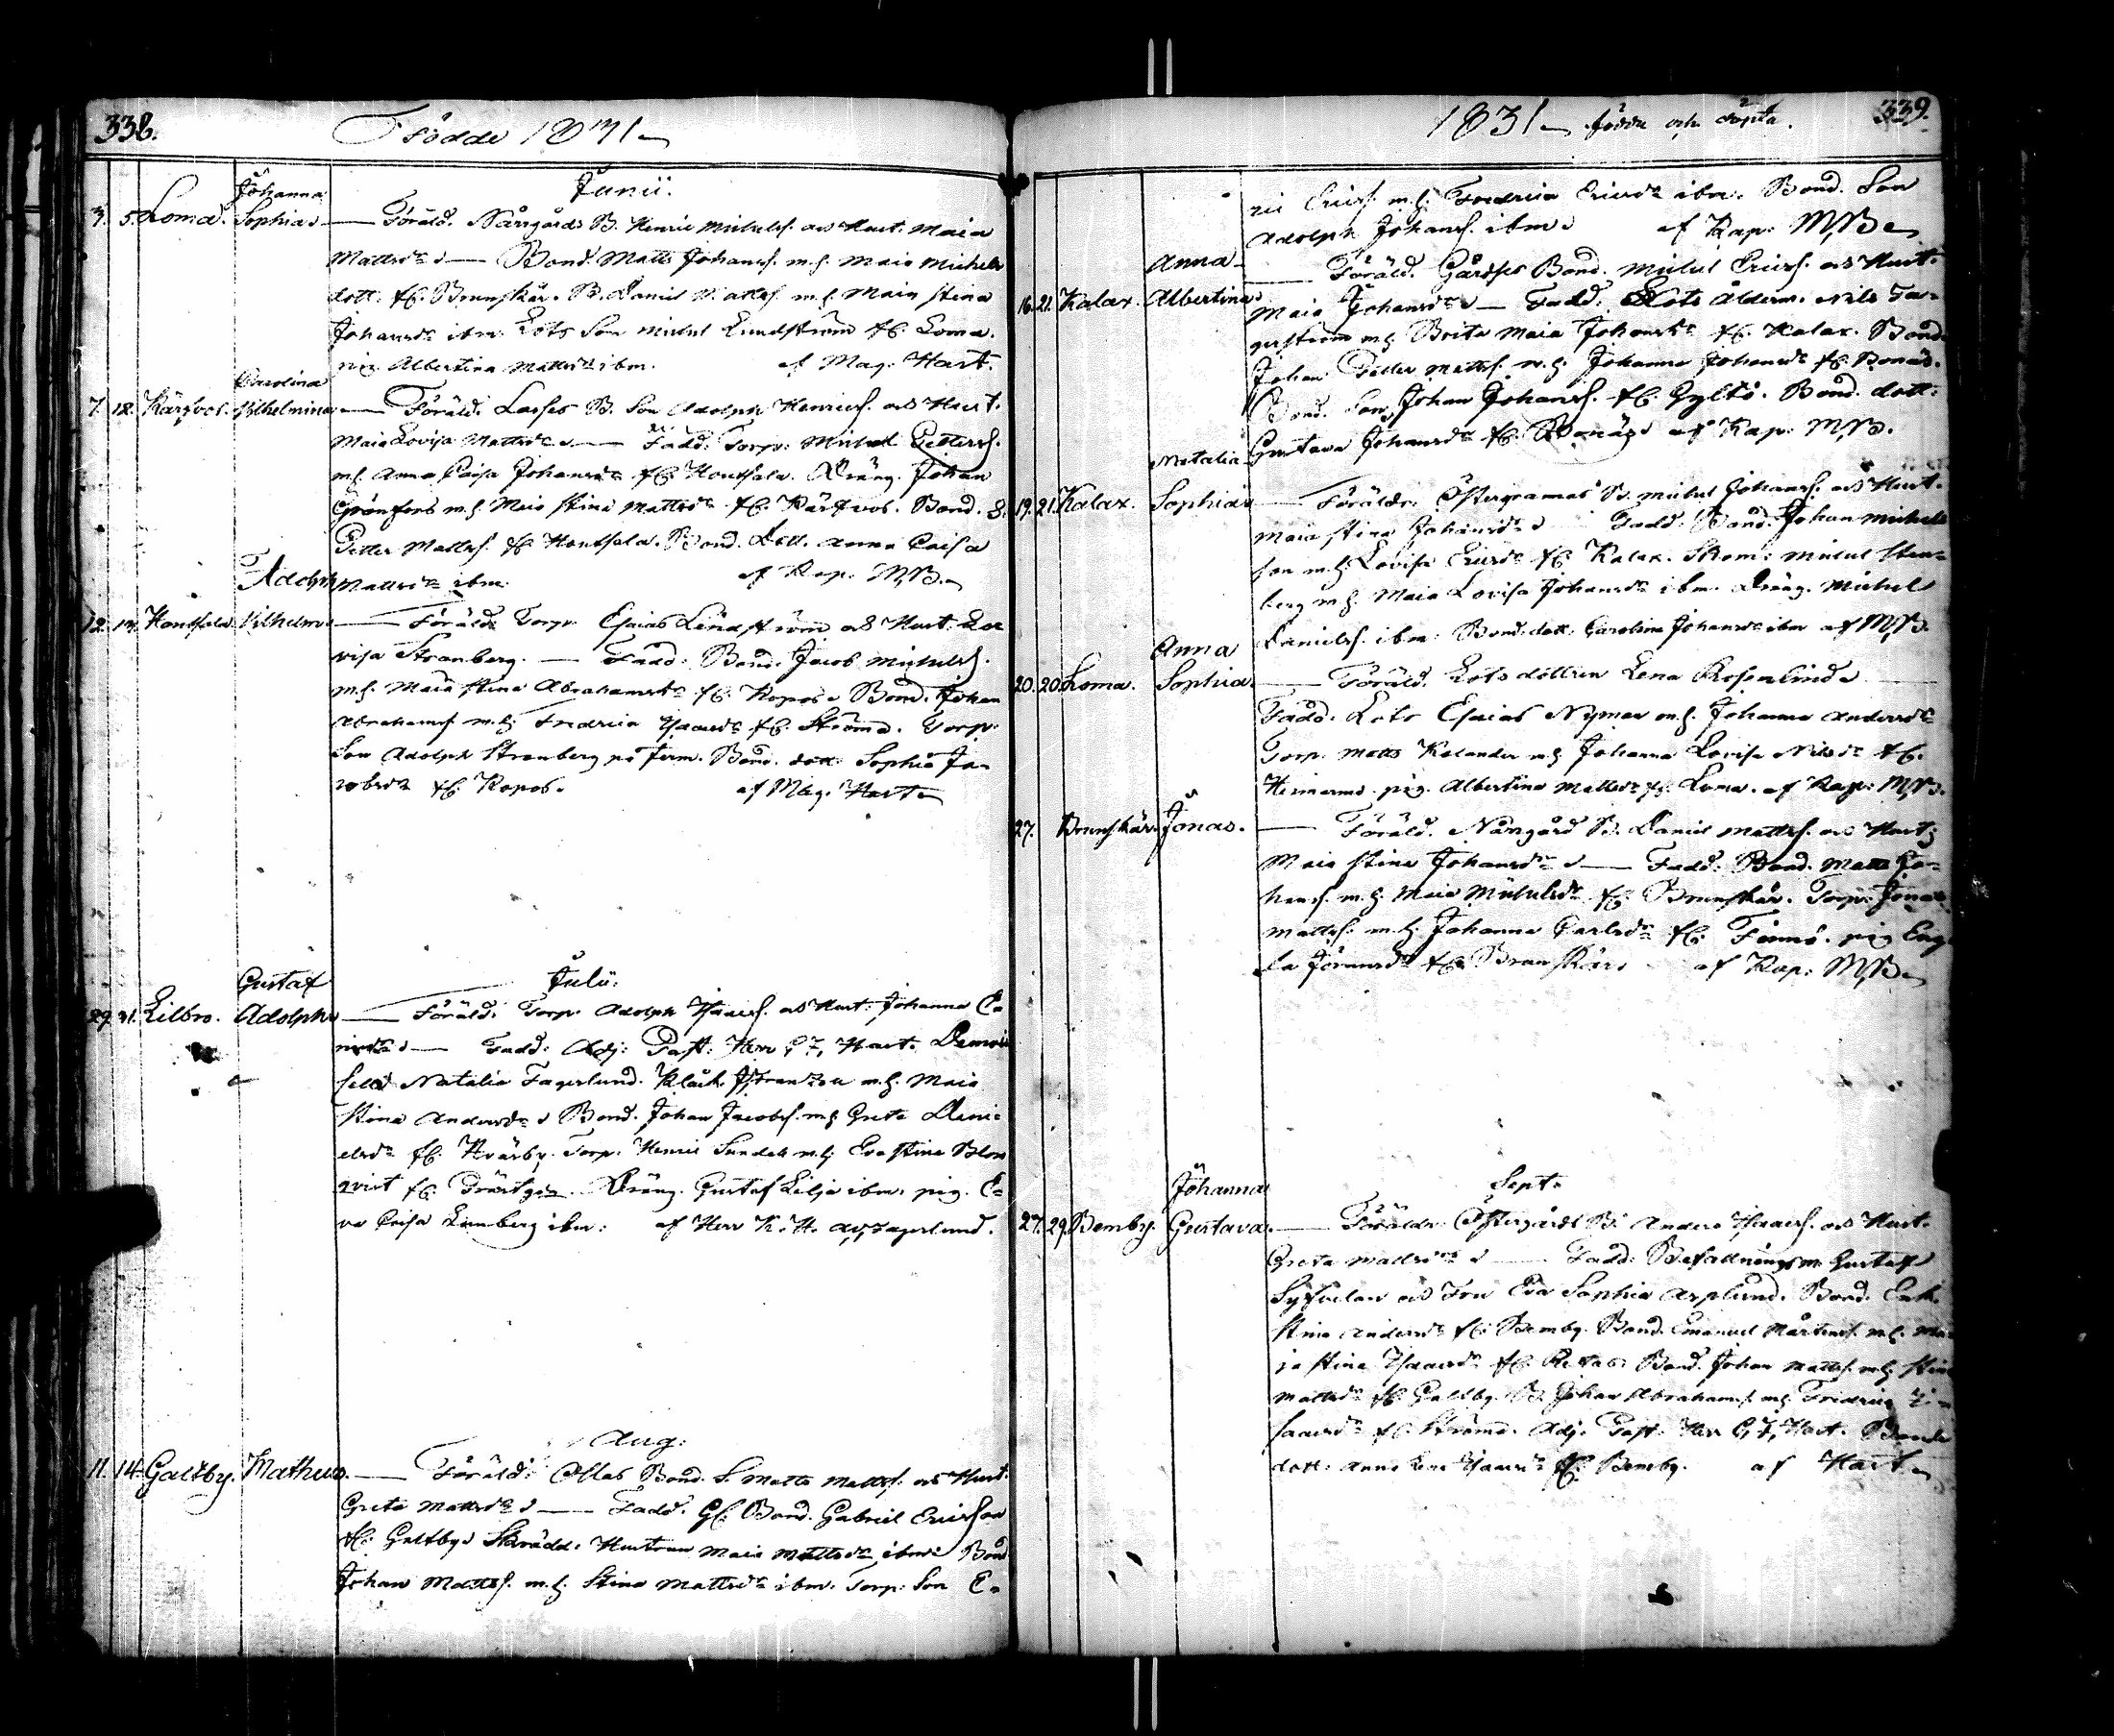 338.
Födde 1831
Junii.
Johanna
3. 5. Loma. Sophia — Föräld. Nårrgårds B. Henric Michels. och Hust. Maia
Mattsdr — Bond. Matts Johanss. m.h. Maia Michels
dott. fr. Brunskär. B. Daniel Matts. m.h. Maia Stina
Johansdr ibm. Lots Son Michel Lundström fr. Loma.
pig. Albertina Mattsdr ibm. af Mag. Hart.
Carolina
7. 12. Kärfvos. Vilhelmina — Föräld. Lasses B. Son Adolph Henrics. och Hust.
Maia Lovisa Mattsdr — Fadd. Torp. Michel Petterss.
m.h. Anna Caisa Johansdr fr. Houtsala. Dräng. Johan
Grönfors m.h. Maia Stina Mattsdr fr. Kärfvos. Bond. S.
Petter Mattss. fr. Houtsala. Bond. Dott. Anna Caisa
Mattsdr ibm. af Kap. M,B.
Adolph
12. Houtsala Vilhelm — Föräld. Torp. Esaias Lindström och Hust. Lo
visa Stranberg. — Fadd. Bond. Jacob Michelss.
m.h. Maia Stina Abrahamsdr fr. Kopos Bond. Johan
Abrahamss m.h. Fredrica Isaacsdr fr. Ströma. Torp.
Son Adolph Stranberg på Jerm. Bond. dott. Sophia Ja-
cobsdr fr. Kopos. af Mag. Hart
Julii.
Gustaf
29. 31. Lilbro. Adolph — Föräld. Torp. Adolph Isaacs. och Hust. Johanna E-
ricsdr — Fadd. Adj. Past. Herr G F, Hart. Demoi
sell Natalia Fagerlund. Klåck. Stranzen m.h. Maia
Stina Andersdr Bond. Johan Jacobss. m.h. Greta Dani-
elsdr fr. Kvärby. Torp. Henric Sundel m.h. Eva Stina Blom
qvist fr. Präst Dräng. Gustaf Lilja ibm. pig. E-
va Caisa Limberg ibm. af Herr K. H. Fagerlund.
Aug.
11. 14. Galtby. Matheus. — Föräld. Ollas Bond. S. Matts Mattss. och Hust.
Greta Mattsdr — Fadd. Gl. Bond. Gabriel Ericsson
fr. Galtby Skrädd. Hustrun Maia Mattsdr ibm. Bond
Johan Mattss. m.h. Stina Mattsdr ibm. Torp. Son E-
1831 födde och döpta. 339.
ric Ericss. m.h. Fredrica Ericsdr ibm. Bond. Son
Adolph Johanss. ibm af Kap. M,B
Anna
16. 21. Kalax. Albertina — Föräld. Gårdses Bond. Michel Ericss. och Hust.
Maia Johansdr — Fadd. Lots Ålderm. Nils Fa-
gerström m.h. Brita Maia Johansdr fr. Kalax. Bond
Johan Petter Mattss. m.h. Johanna Johansdr fr. Bonäs.
Bond. Son Johan Johanss. fr. Gyltö. Bond. dott.
Gustava Johansdr fr. Bonäs af Kap. M,B.
Natalia
19. 21. Kalax. Sophia — Föräldr. Östergramas B. Michel Johanss. och Hust.
Maia Stina Johansdr Fadd. Bond. Johan Michels
son m.h. Lovisa Ericsdr fr. Kalax. Skom. Michel Sten-
berg m.h. Maia Lovisa Johansdr ibm. Dräng. Michel
Danielss. ibm. Bond. dott. Carolina Johansdr ibm af M,B.
Anna
20. 20. Loma. Sophia. — Föräld. Lots dottren Lena Rosenlind
Fadd. Lots Esaias Nyman m.h. Johanna Andersdr
Torp. Matts Kalander m.h. Johanna Lovisa Nilsdr fr.
Heimarnö. pig. Albertina Mattsdr fr. Loma. af Kap. M,B.
27. Brunskär. Jonas. — Föräld. Nårrgård B. Daniel Mattss. och Hust
Maia Stina Johansdr — Fadd. Bond. Matts Jo-
hanss. m.h. Maia Michelsdr fr. Brunskär. Torp. Jonas
Mattss. m.h. Johanna Carlsdr fr. Finnö. pig Eng-
la Jöransdr fr. Brunskär af Kap. M,B
Sept.
Johanna
27. 29. Bemby. Gustava. — Föräldr. Östergårds B. Anders Isaacs. och Hust.
Greta Mattsdr — Fadd. Befallningsm. Gustaf
och Fru Eva Sophia Asplund. Bond. Enk.
Stina Andersdr fr. Bemby. Bond. Emanuel Mårtens. m.h. Ma
ja Stina Isaacsdr fr. Bond. Johan Mattss. m.h. Stina
Mattsdr fr. Galtby. B. Johan Abrahamss. m.h. Fredrica I-
saacsdr fr. Ströma. Adj. Past. Herr G F, Hart. Bonde
dott. Anna Lena Isaacsdr fr. Bemby. af Hart